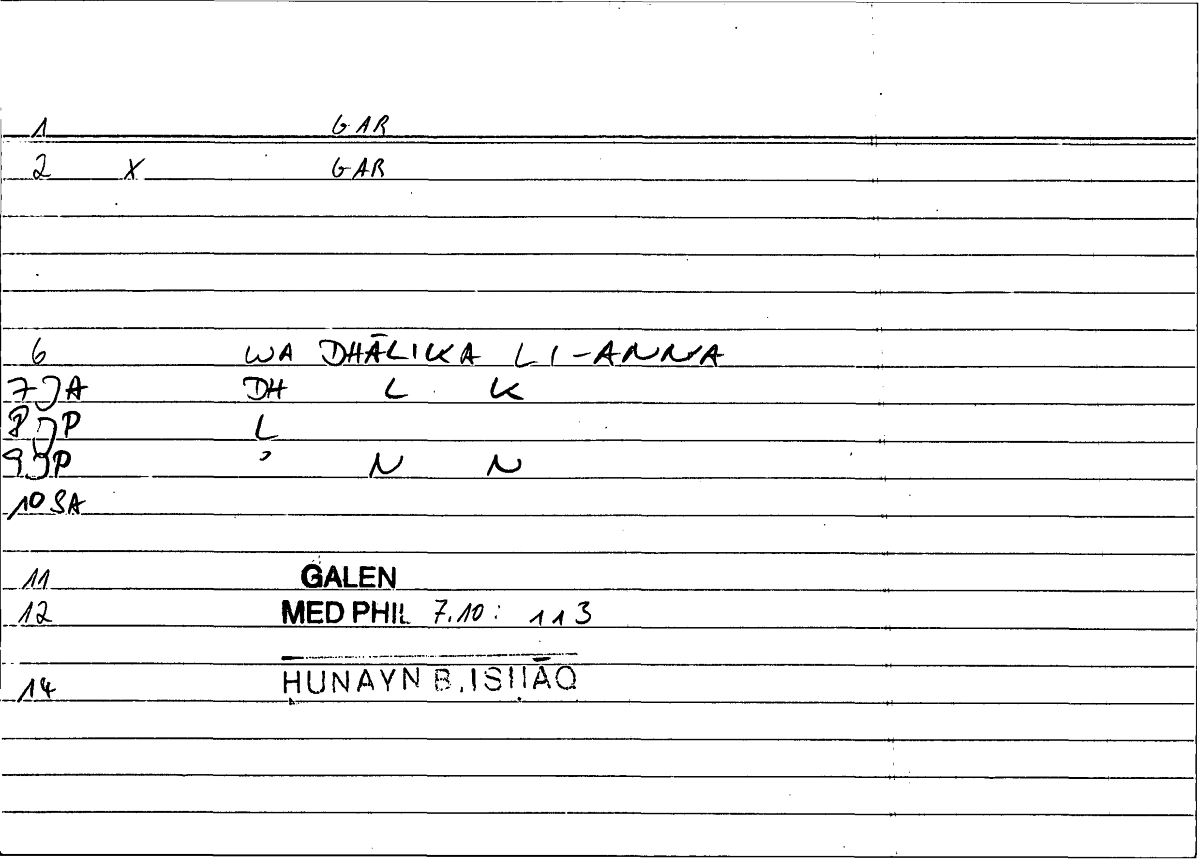 1 GAR
2 X GAR
6 WA DHĀLIKA LI-ANNA
7 JA DH L K
8 JP L
9 JP ʾ N N
10 SA
11 GALEN
12 MED PHIL 7.10: 113
14 ḤUNAYN B. ISḤĀQ